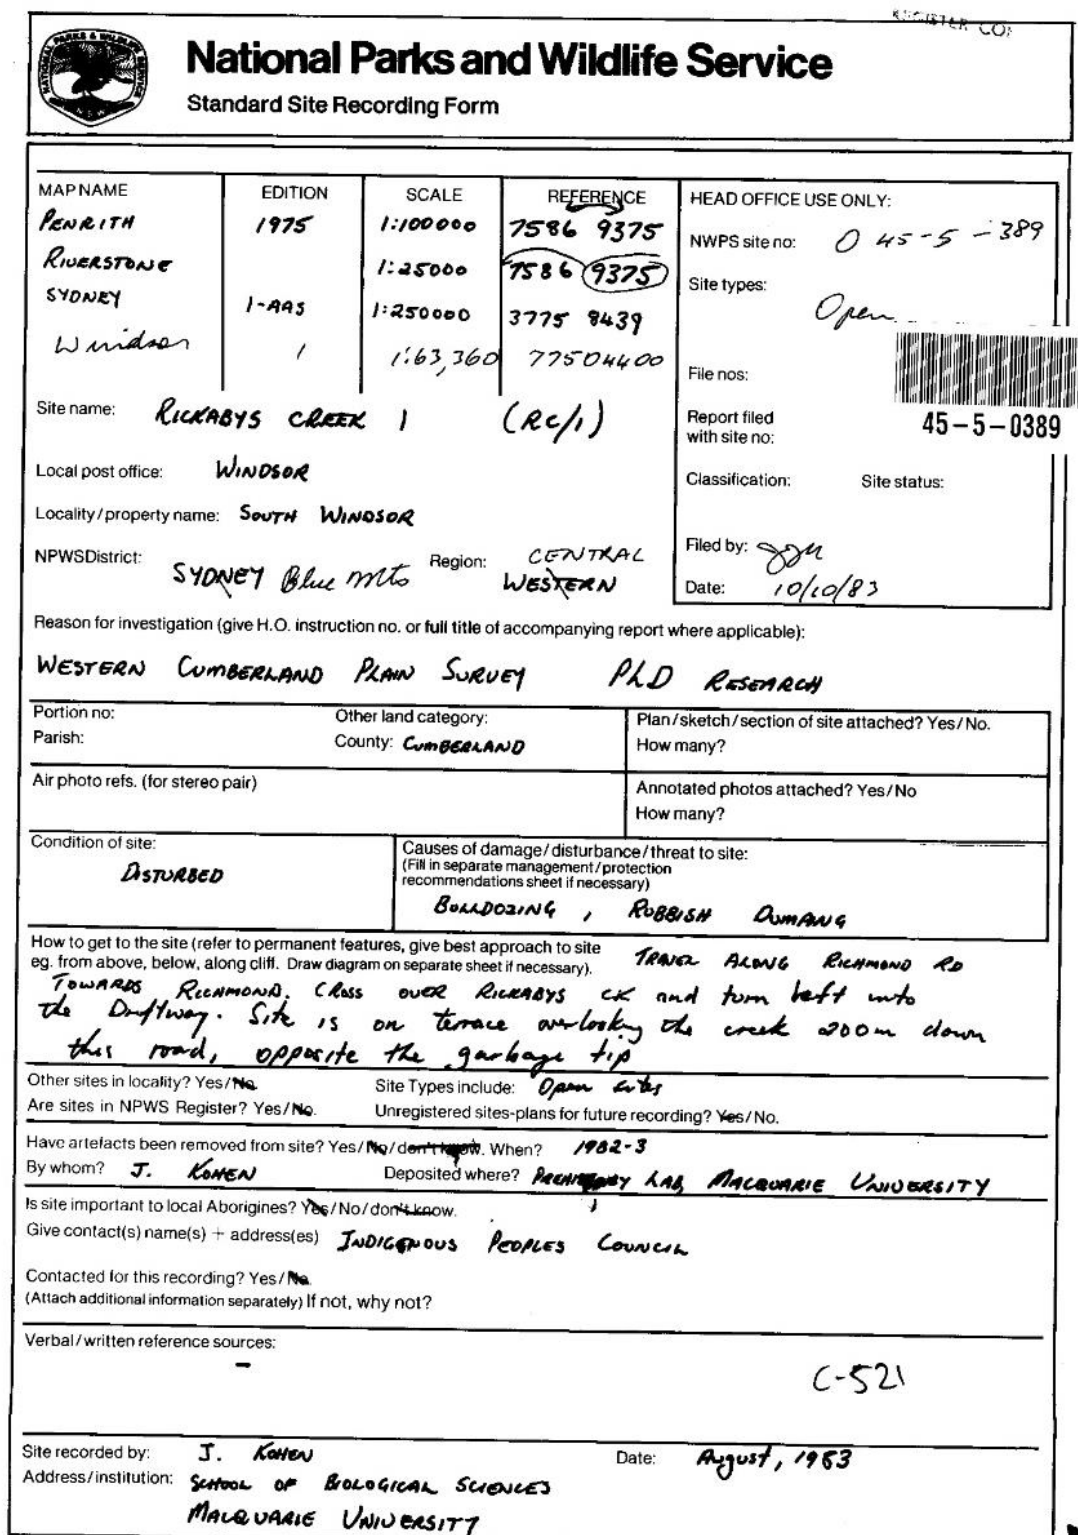 REGISTER COP
NATIONAL PARKS & WILDLIFE SERVICE
N.S.W.
National Parks and Wildlife Service
Standard Site Recording Form
MAP NAME EDITION SCALE REFERENCE
PENRITH 1975 1:100000 7586 9375
RIVERSTONE 1:25000 7586 9375
SYDNEY 1-AAS 1:250000 3775 8439
Windsor 1 1:63,360 77504400
HEAD OFFICE USE ONLY:
NWPS site no: O 45-5-389
Site types:
Open
File nos:
Report filed
with site no:
45-5-0389
Classification: Site status:
Filed by:
Date: 10/10/83
Site name: RICKABYS CREEK 1 (RC/1)
Local post office: WINDSOR
Locality/property name: SOUTH WINDSOR
NPWS District: SYDNEY Blue Mts Region: CENTRAL
WESTERN
Reason for investigation (give H.O. instruction no. or full title of accompanying report where applicable):
WESTERN CUMBERLAND PLAIN SURVEY PhD RESEARCH
Portion no: Other land category:
Parish: County: CUMBERLAND
Plan/sketch/section of site attached? Yes/No.
How many?
Air photo refs. (for stereo pair)
Annotated photos attached? Yes/No
How many?
Condition of site:
DISTURBED
Causes of damage/disturbance/threat to site:
(Fill in separate management/protection
recommendations sheet if necessary)
BULLDOZING, RUBBISH DUMPING
How to get to the site (refer to permanent features, give best approach to site
eg. from above, below, along cliff. Draw diagram on separate sheet if necessary). TRAVEL ALONG RICHMOND RD
TOWARDS RICHMOND. CROSS OVER RICKABYS CK and turn left into
the Driftway. Site is on terrace overlooking the creek 200m down
this road, opposite the garbage tip
Other sites in locality? Yes/No. Site Types include: Open sites
Are sites in NPWS Register? Yes/No. Unregistered sites-plans for future recording? Yes/No.
Have artefacts been removed from site? Yes/No/don't know. When? 1982-3
By whom? J. KOHEN Deposited where? PREHISTORY LAB, MACQUARIE UNIVERSITY
Is site important to local Aborigines? Yes/No/don't know.
Give contact(s) name(s) + address(es) INDIGENOUS PEOPLES COUNCIL
Contacted for this recording? Yes/No.
(Attach additional information separately) If not, why not?
Verbal/written reference sources:
–
C-521
Site recorded by: J. KOHEN Date: August, 1983
Address/institution: SCHOOL OF BIOLOGICAL SCIENCES
MACQUARIE UNIVERSITY